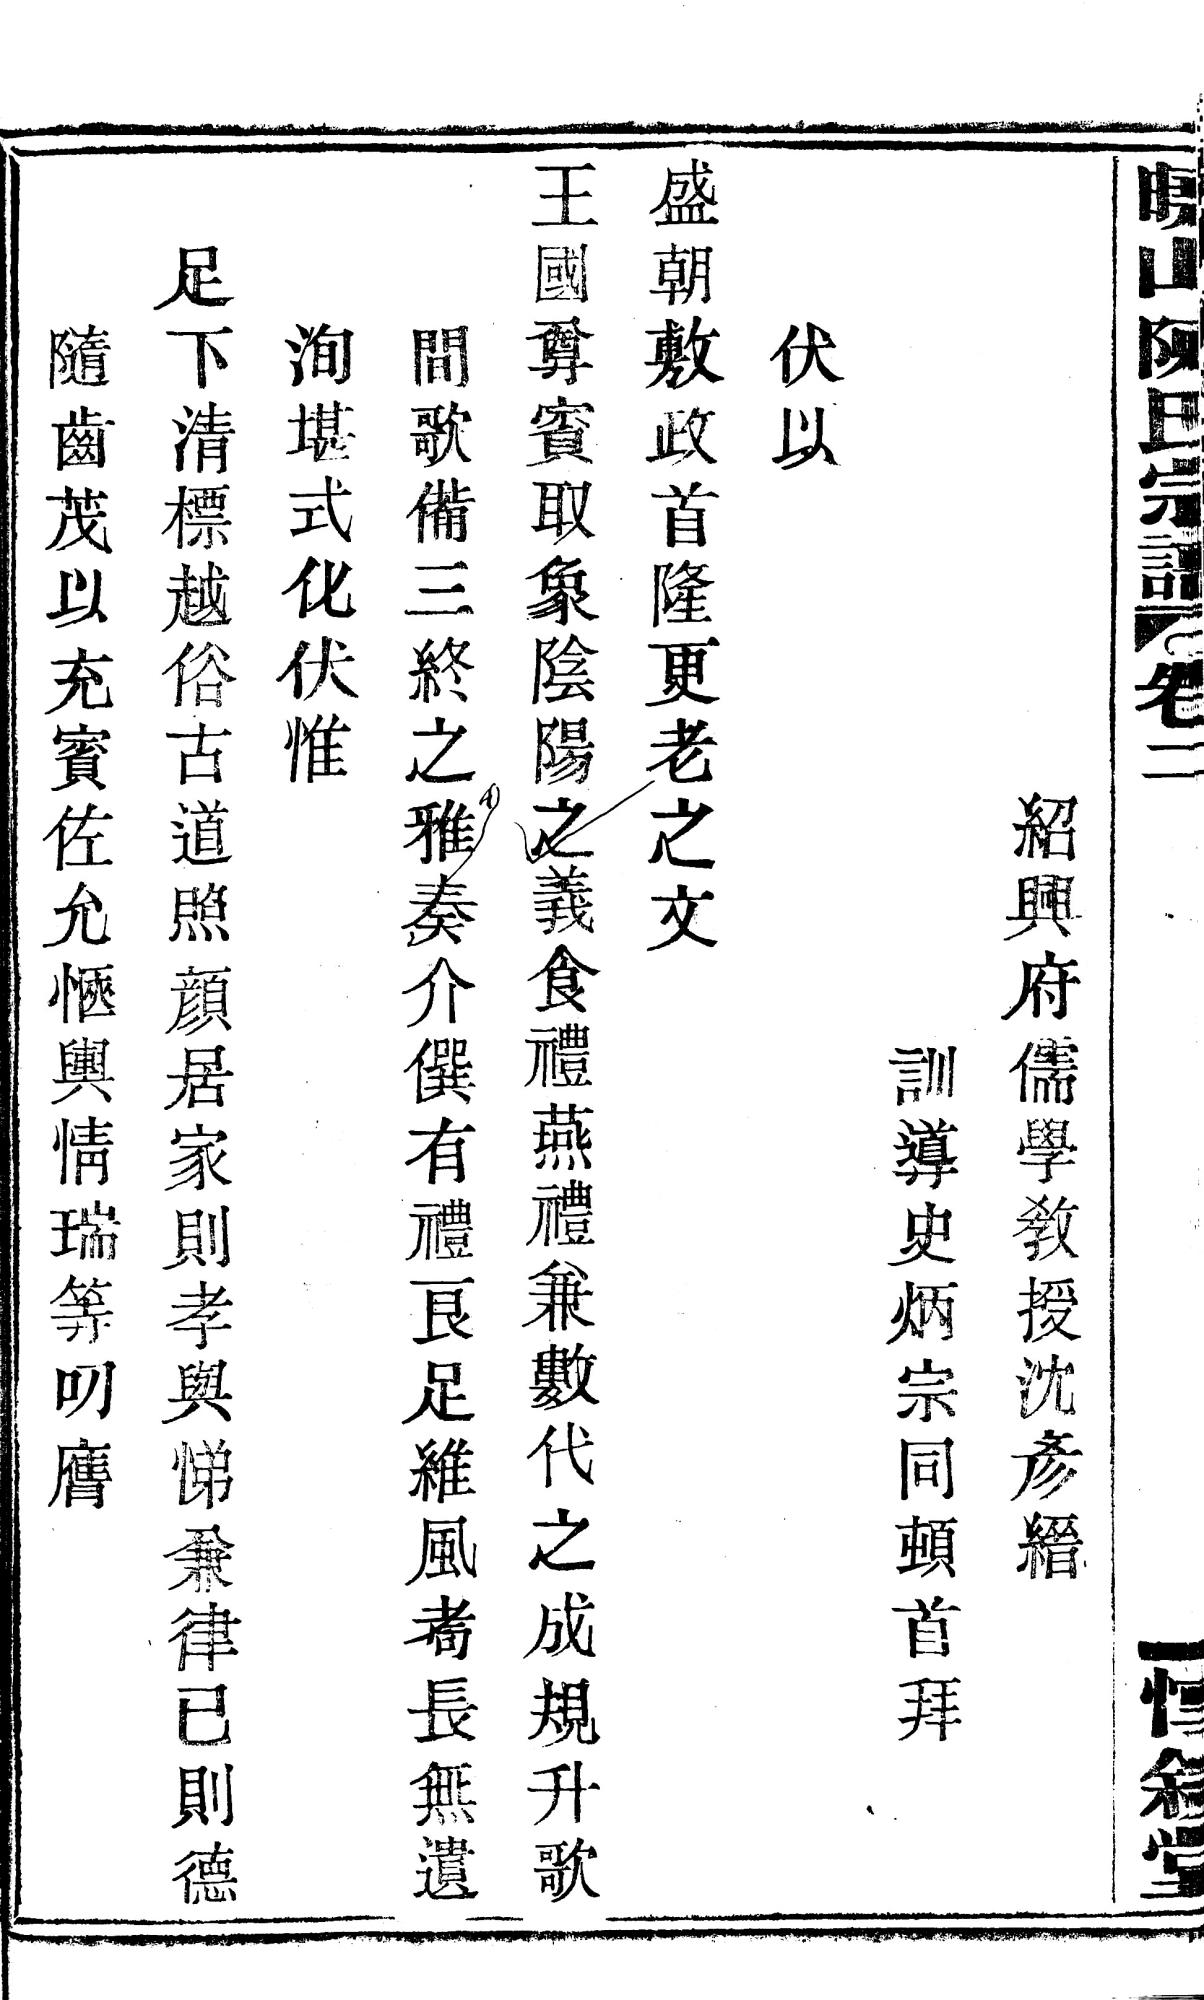 山陳氏宗譜 卷二
惇叙堂
紹興府儒學教授沈彥縉
訓導史炳宗同頓首拜
伏以
盛朝敷政首隆更老之文
王國尊賓取象陰陽之義食禮燕禮兼數代之成規升歌
間歌備三終之雅奏介僎有禮艮足維風耇長無遺
洵堪式化伏惟
足
下清標越俗古道照顔居家則孝與悌兼律已則德
隨齒茂以充賓佐允愜輿情瑞等叨膺